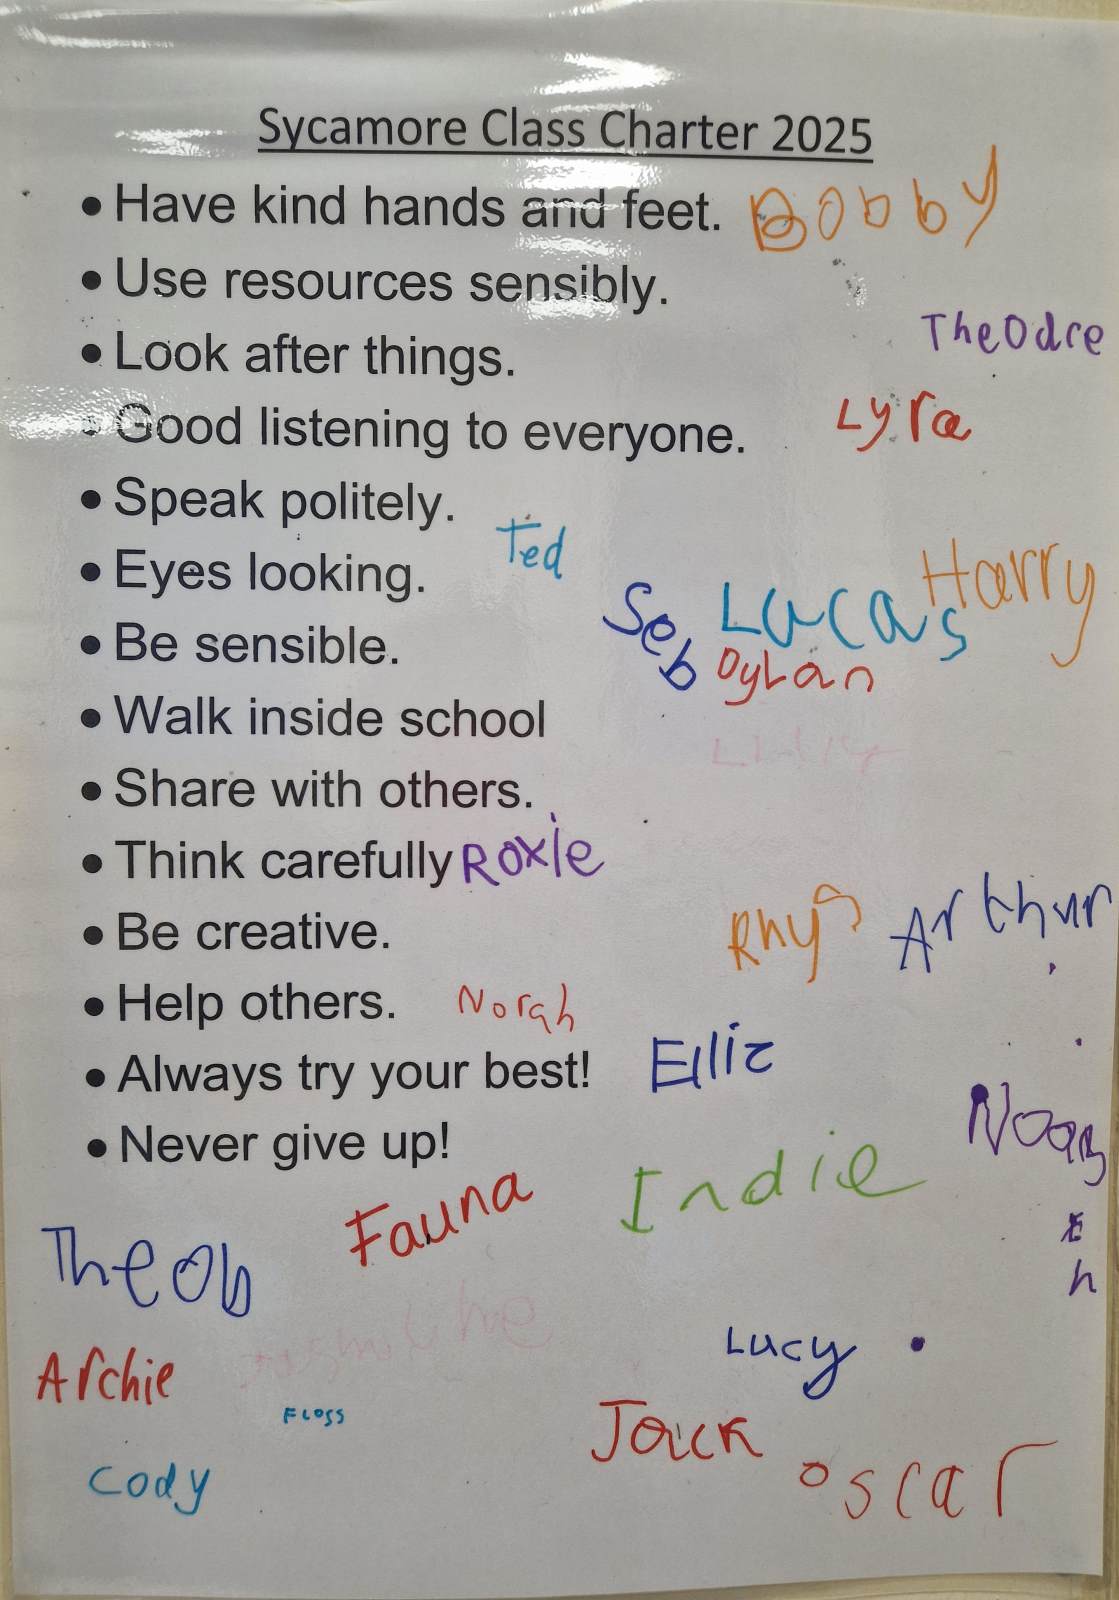 Sycamore Class Charter 2025
• Have kind hands and feet. Bobby
• Use resources sensibly.
Theodre
• Look after things.
Lyra
• Good listening to everyone.
• Speak politely.
Ted
Harry
• Eyes looking.
Seb Lucas
• Be sensible.
Dylan
• Walk inside school
• Share with others.
• Think carefully Roxie
Rhys Arthur
• Be creative.
• Help others. Norah
Ellie
• Always try your best!
• Never give up!
Fauna Indie
Theo b
Lucy
Archie
Floss
Jack
Cody
oscar